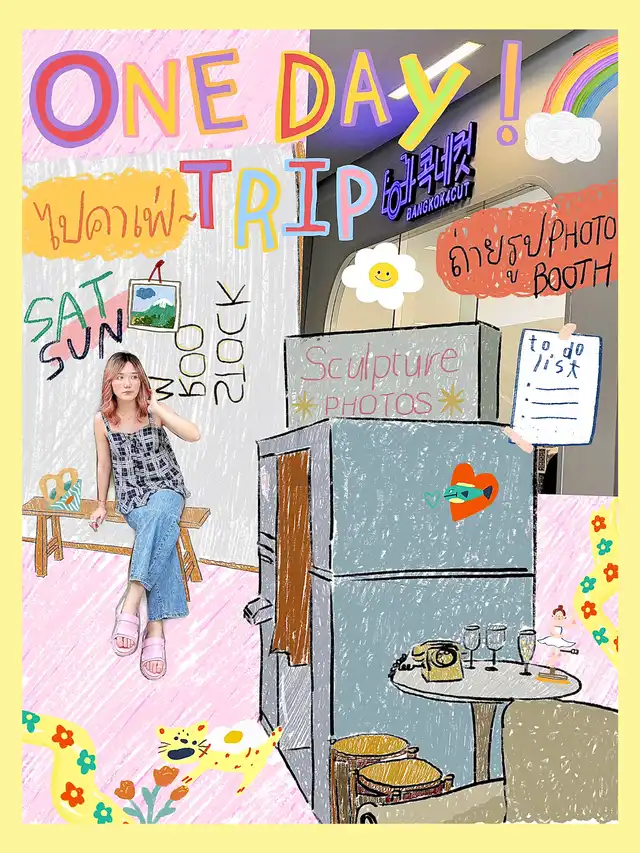 ONE DAY!
TRIP
방콕네컷
BANGKOK4CUT
ไปคาเฟ่~
ถ่ายรูป PHOTO
BOOTH
SAT
SUN
STOCK
to do
list
Sculpture
PHOTOS